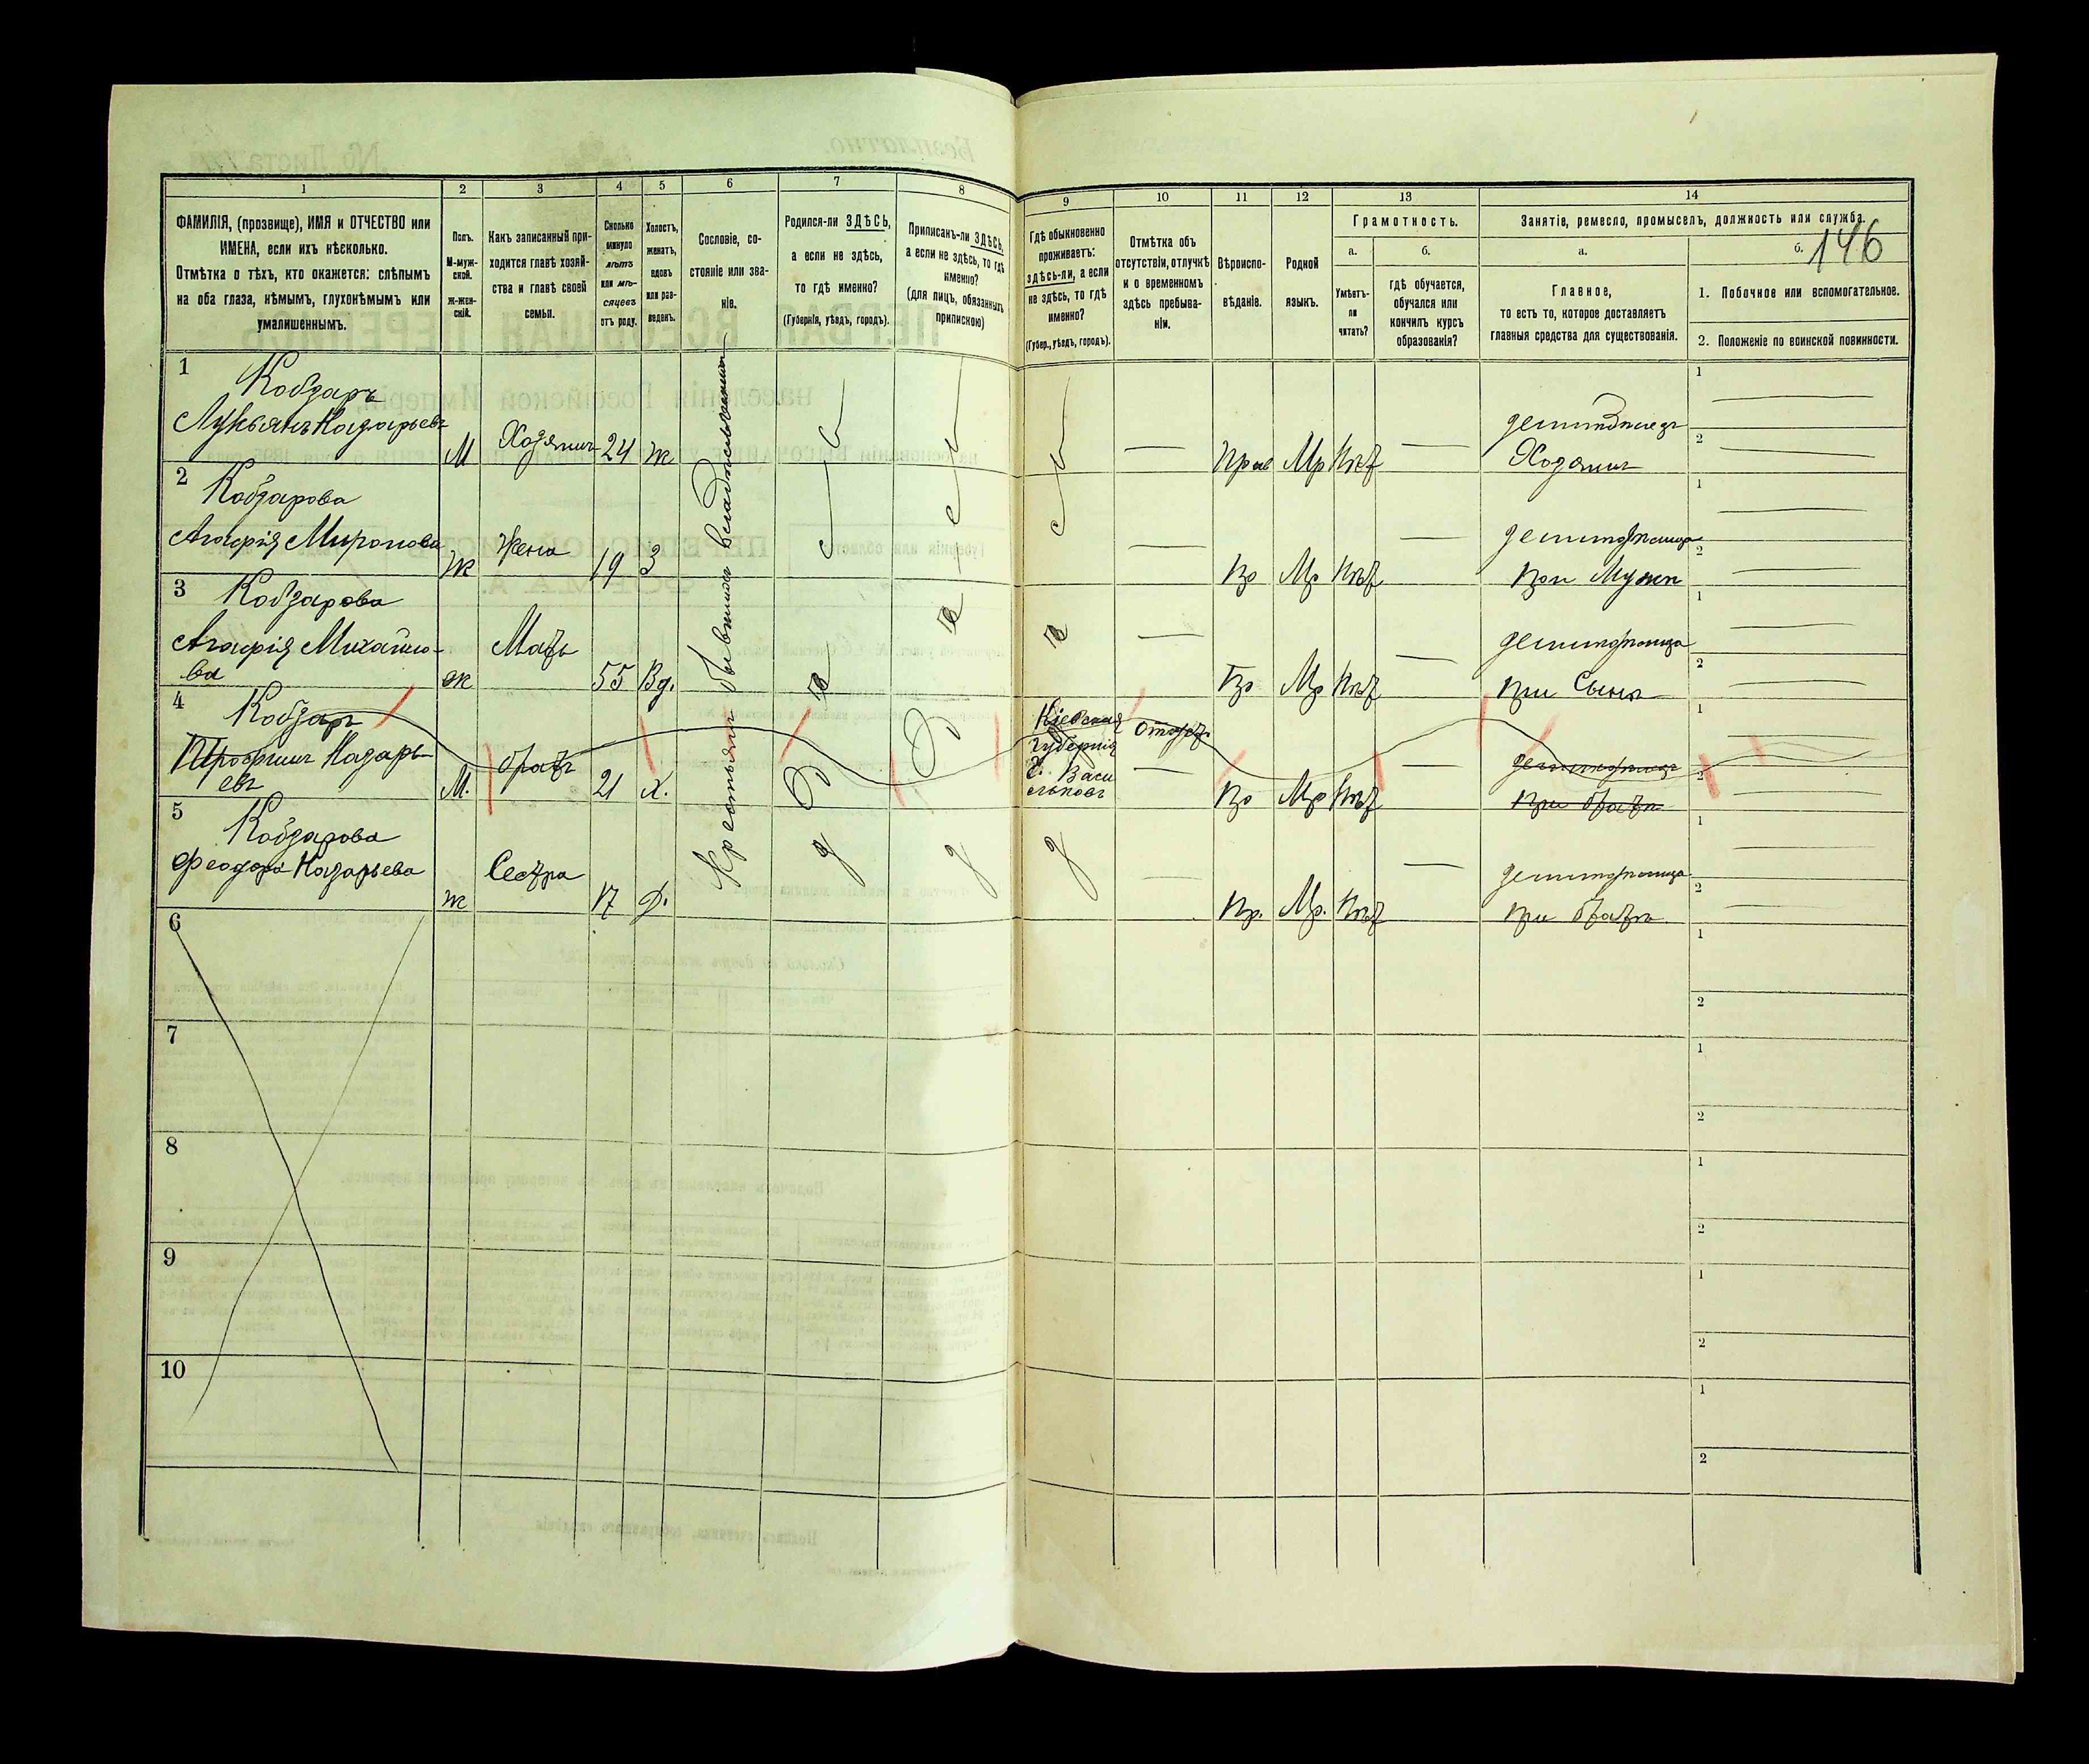 1 2 3 4 5 6 7 8 9 10 11 12 13 14
ФАМИЛІЯ, (прозвище), ИМЯ и ОТЧЕСТВО или
ИМЕНА, если ихъ нѣсколько.
Отмѣтка о тѣхъ, кто окажется: слѣпымъ
на оба глаза, нѣмымъ, глухонѣмымъ или
умалишеннымъ.
Полъ.
М-муж-
ской.
ж-жен-
скій.
Какъ записанный при-
ходится главѣ хозяй-
ства и главѣ своей
семьи.
Сколько
минуло
лѣтъ
или мѣ-
сяцевъ
отъ роду.
Холостъ,
женатъ,
вдовъ
или раз-
веденъ.
Сословіе, со-
стояніе или зва-
ніе.
Родился-ли ЗДѢСЬ,
а если не здѣсь,
то гдѣ именно?
(Губернія, уѣздъ, городъ).
Приписанъ-ли ЗДѢСЬ,
а если не здѣсь, то гдѣ
именно?
(для лицъ, обязанныхъ
припискою)
Гдѣ обыкновенно
проживаетъ:
здѣсь-ли, а если
не здѣсь, то гдѣ
именно?
(Губер., уѣздъ, городъ).
Отмѣтка объ
отсутствіи, отлучкѣ
и о временномъ
здѣсь пребыва-
ніи.
Вѣроиспо-
вѣданіе.
Родной
языкъ.
Грамотность.
а.
Умѣетъ-
ли
читать?
б.
гдѣ обучается,
обучался или
кончилъ курсъ
образованія?
Занятіе, ремесло, промыселъ, должность или служба.
а.
Главное,
то есть то, которое доставляетъ
главныя средства для существованія.
б.
146
1. Побочное или вспомогательное.
2. Положеніе по воинской повинности.
Крестьянъ бывшихъ
1
Кобзарь
Лукьянъ Назарьевъ
М
Хозяинъ
24
ж
Прав
Мр
Нѣт
Хозяинъ
1
2
2
Кобзарова
Агафія Миронова
Ж
Жена
19
З
Пр
Мр
Нѣт
при Мужѣ
1
2
3
Кобзарова
Агафія Михайло-
ва
ж
Мать
55
Вд.
Пр
Мр
Нѣт
при Сынѣ
1
2
4
Кобзарь
Назарь-
евъ
М.
братъ
21
х.
Кіевская
губернія
г. Васи
льковъ
Пр
Мр
Нѣт
при братѣ
1
2
5
Кобзарова
Феодора Назарьева
ж
Сестра
17
Д.
Пр.
Мр.
Нѣт
при братѣ
1
2
6
1
2
7
1
2
8
1
2
9
1
2
10
1
2